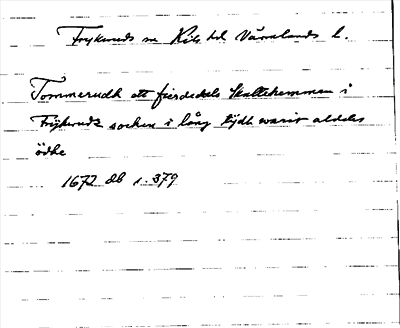 Frykeruds sn Kils hd Värmlands l.
Tommerudh ett fierdedels skattehemman i
Frÿkeruds sochen i lång tÿdh warit aldeles
ödhe
1672 db s. 379